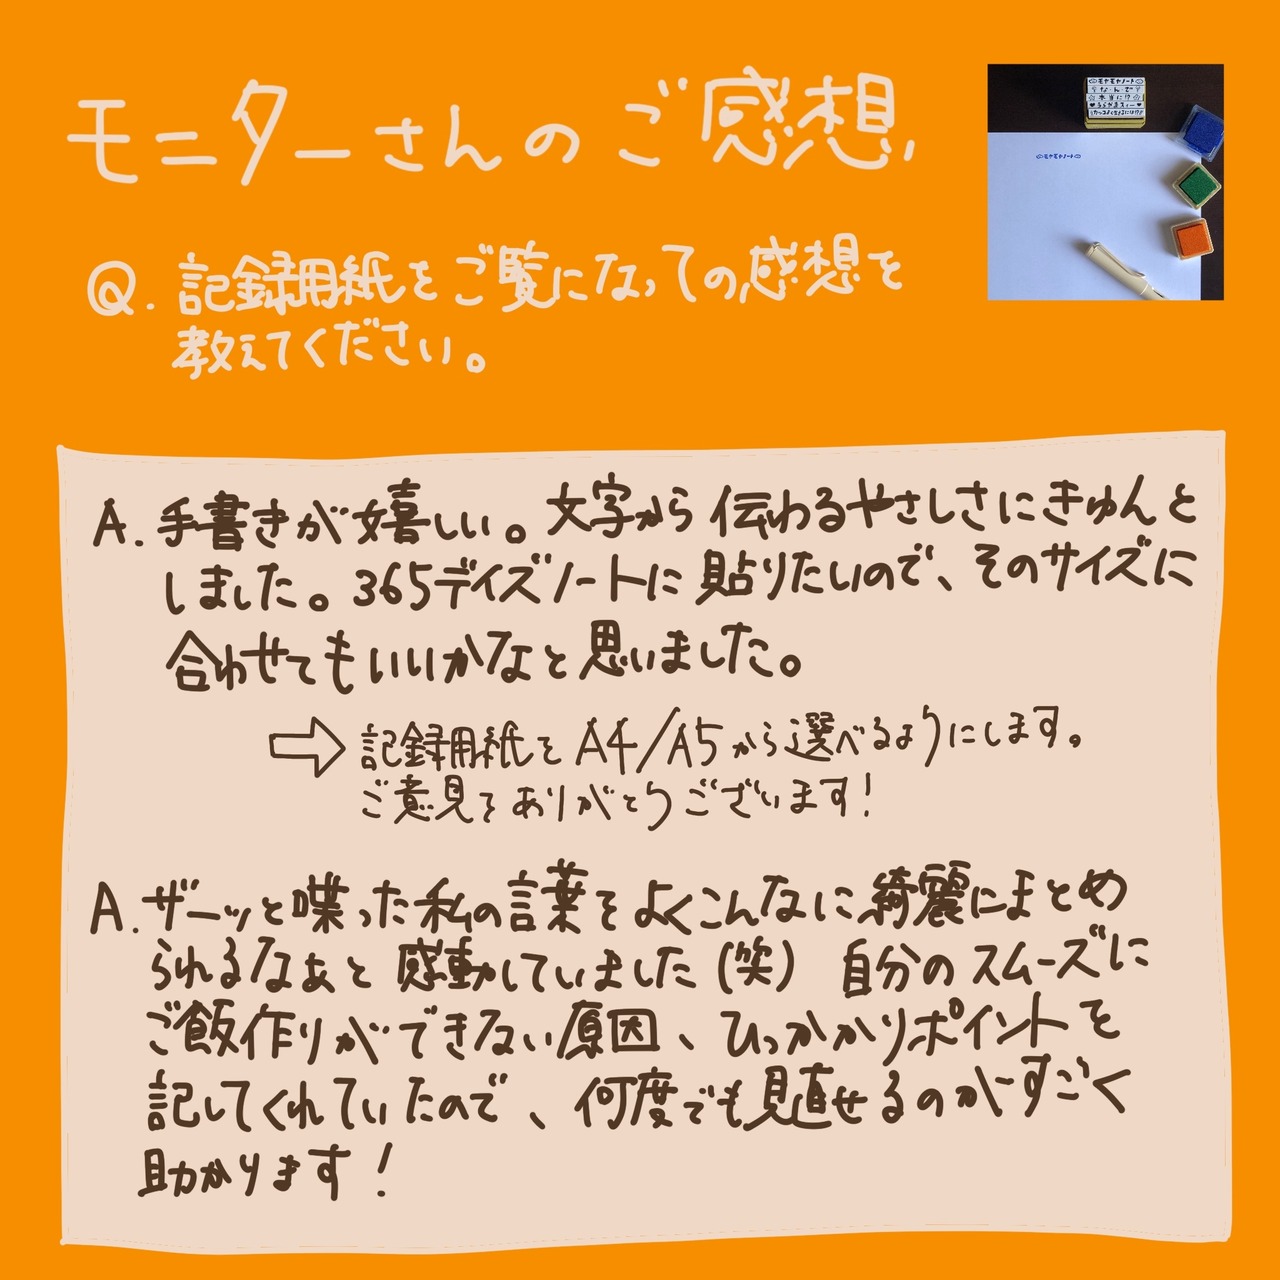 モニターさんのご感想
Q. 記録用紙をご覧になっての感想を
教えてください。
A. 手書きが嬉しい。文字から伝わるやさしさにきゅんと
しました。365デイズノートに貼りたいので、そのサイズに
合わせてもいいかなと思いました。
⇨ 記録用紙をA4/A5から選べるようにします。
ご意見をありがとうございます!
A. ザーッと喋った私の言葉をよくこんなに綺麗にまとめ
られるなぁと感動していました(笑) 自分のスムーズに
ご飯作りができない原因、ひっかかりポイントを
記してくれていたので、何度でも見直せるのがすごく
助かります!
モヤモヤノート
な・ん・で
本当に!?
モヤモヤノート